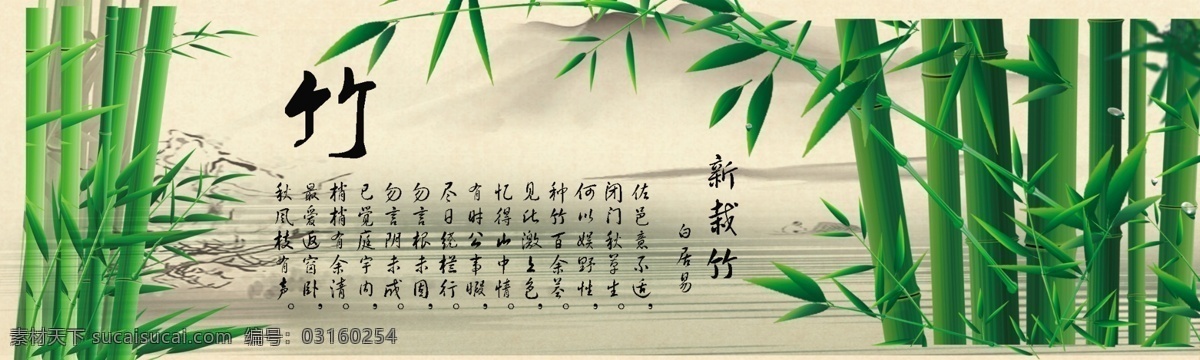 竹
新栽竹
白居易
佐邑意不适,
闭门秋草生。
何以娱野性,
种竹百余茎。
见此激上色,
忆得山中情。
有时公事暇,
尽日绕栏行。
勿言根未固,
勿言阴未成。
已觉庭宇内,
梢梢有余清。
最爱返窗卧,
秋风枝有声。
素材天下 sucaisucai.com 编号: 03160254